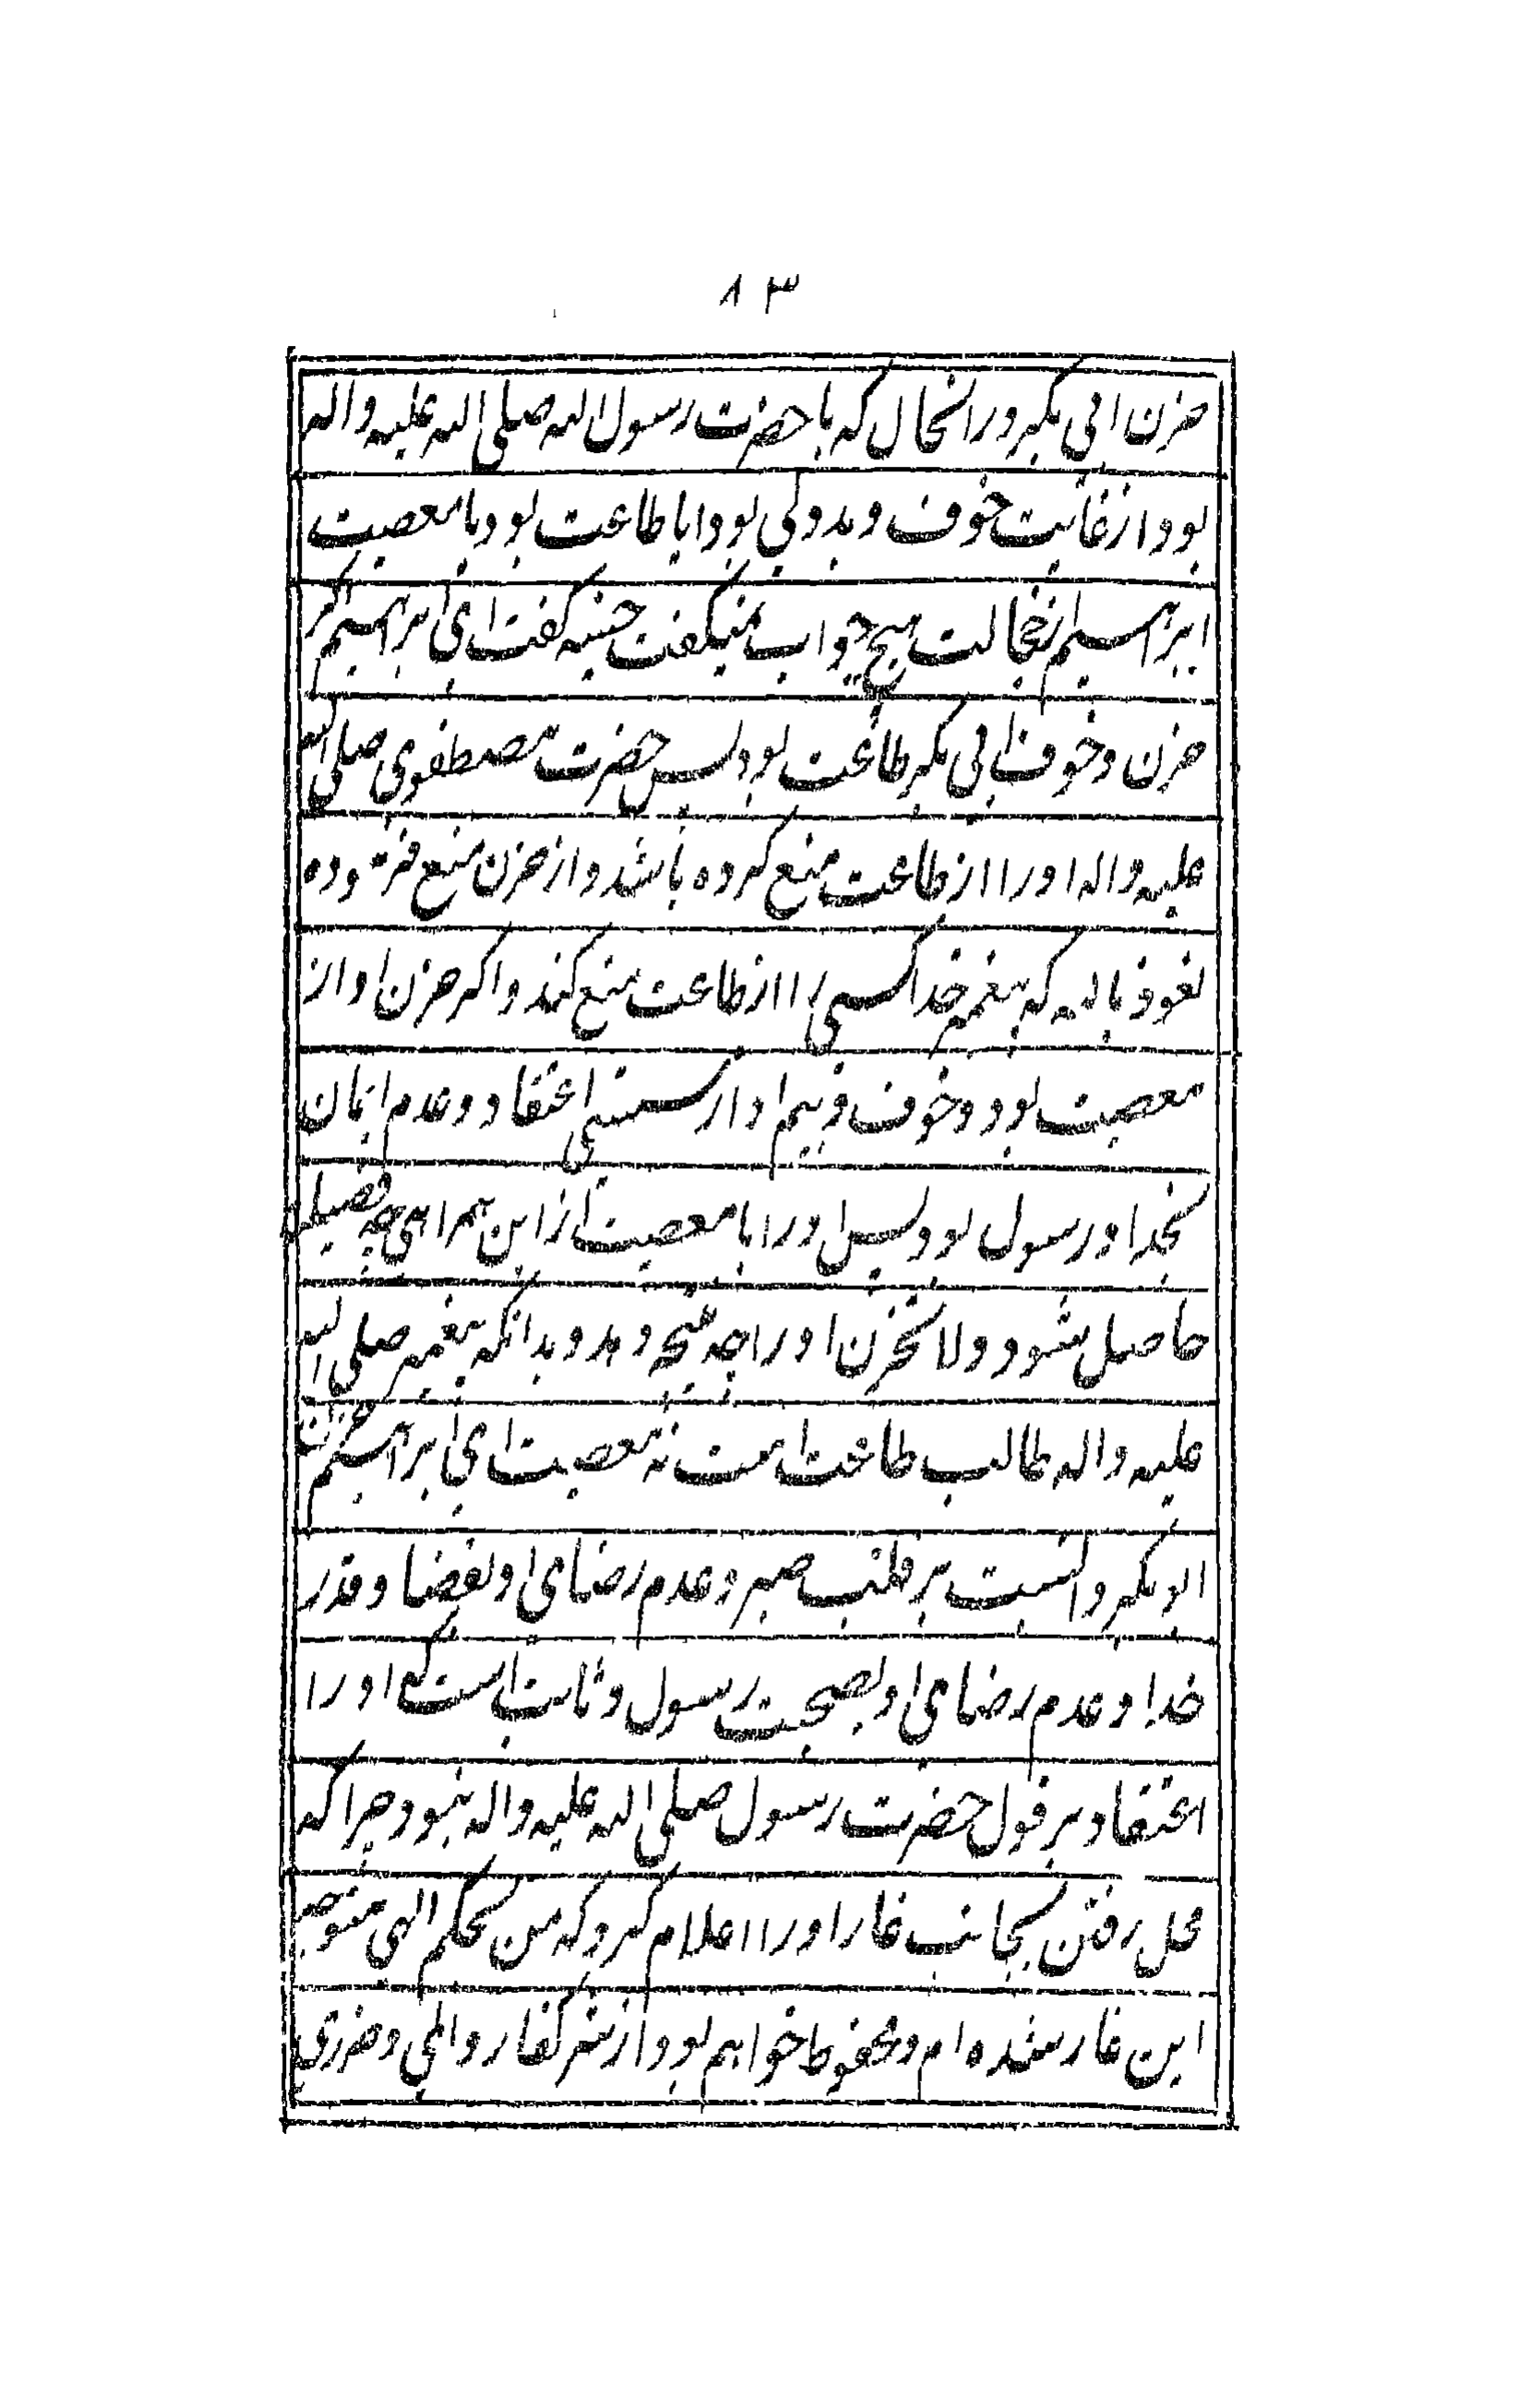 ۸۳
حزن ابی بکر در انحال که با حضرت رسول الله صلی الله علیه و اله
بود از غایت خوف و بددلی بود ایا طاعت بود یا معصیت
ابراهیم از خجالت هیچ جواب نمیگفت حسنیه گفت ای ابراهیم اگر
حزن و خوف ابی بکر طاعت بود پس حضرت مصطفوی صلی الله
علیه و اله او را از طاعت منع کرده باشد و از حزن منع فرموده
نعوذ بالله که پیغمبر خدا کسی را از طاعت منع کند و اگر حزن او از
معصیت بود و خوف و بیم او از سستی اعتقاد و عدم ایمان
بخدا و رسول بود پس او را با معصیت از این همراهی چه فضیلت
حاصل شود و لا تحزن او را چه نتیجه دهد و بدانکه پیغمبر صلی الله
علیه و اله طالب طاعت است نه معصیت ای ابراهیم حزن
ابو بکر دالست بر قلت صبر و عدم رضای او بقضا و قدر
خدا و عدم رضای او بصحبت رسول و ثابت است که او را
اعتقاد بر قول حضرت رسول صلی الله علیه و اله نبود چرا که
محل رفتن بجانب غار او را اعلام کرد که من بحکم الهی متوجه
این غار شده ام و محفوظ خواهم بود از شر کفار و المی و ضرری